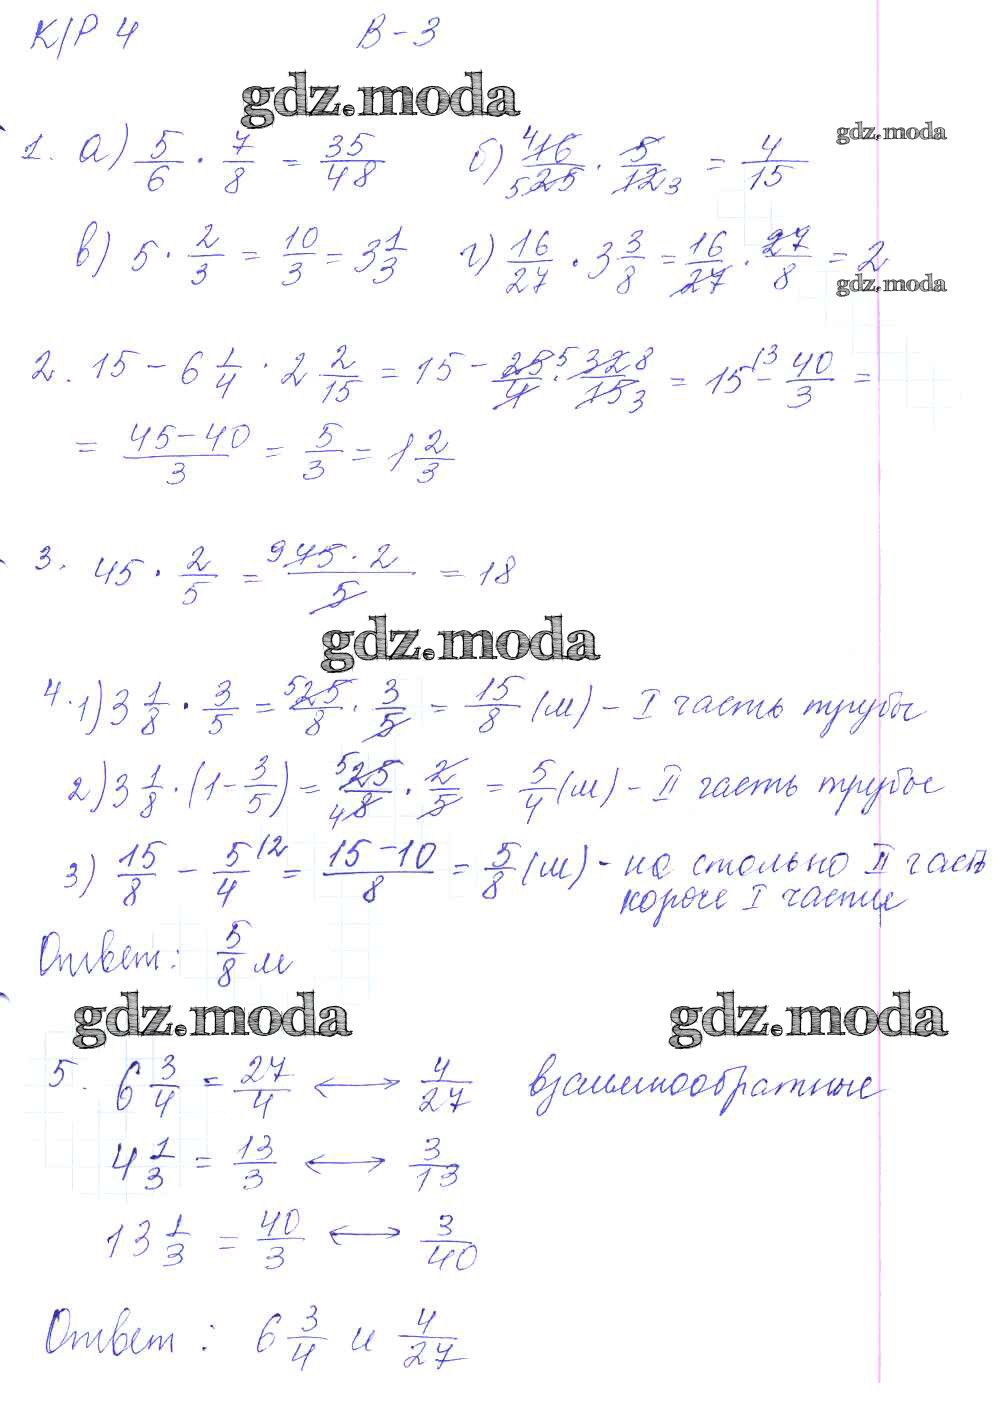 К/Р 4 В-3
gdz.moda
1. а) 5/6 · 7/8 = 35/48 б) 4 16/5 25 · 5/12 3 = 4/15
gdz.moda
в) 5 · 2/3 = 10/3 = 3 1/3 г) 16/27 · 3 3/8 = 16/27 · 27/8 = 2
gdz.moda
2. 15 - 6 1/4 · 2 2/15 = 15 - 25 5/4 · 32 8/15 3 = 15 /3 - 40/3 =
= 45-40/3 = 5/3 = 1 2/3
3. 45 · 2/5 = 9 45 · 2/5 = 18
gdz.moda
4. 1) 3 1/8 · 3/5 = 5 25/8 · 3/5 = 15/8 (м) - I часть трубы
2) 3 1/8 · (1 - 3/5) = 5 25/4 8 · 2/5 = 5/4 (м) - II часть трубы
3) 15/8 - 5/4 /2 = 15-10/8 = 5/8 (м) - на столько II часть
короче I части
Ответ: 5/8 м
gdz.moda gdz.moda
5. 6 3/4 = 27/4 ⟷ 4/27 взаимнообратные
4 1/3 = 13/3 ⟷ 3/13
13 1/3 = 40/3 ⟷ 3/40
Ответ: 6 3/4 и 4/27